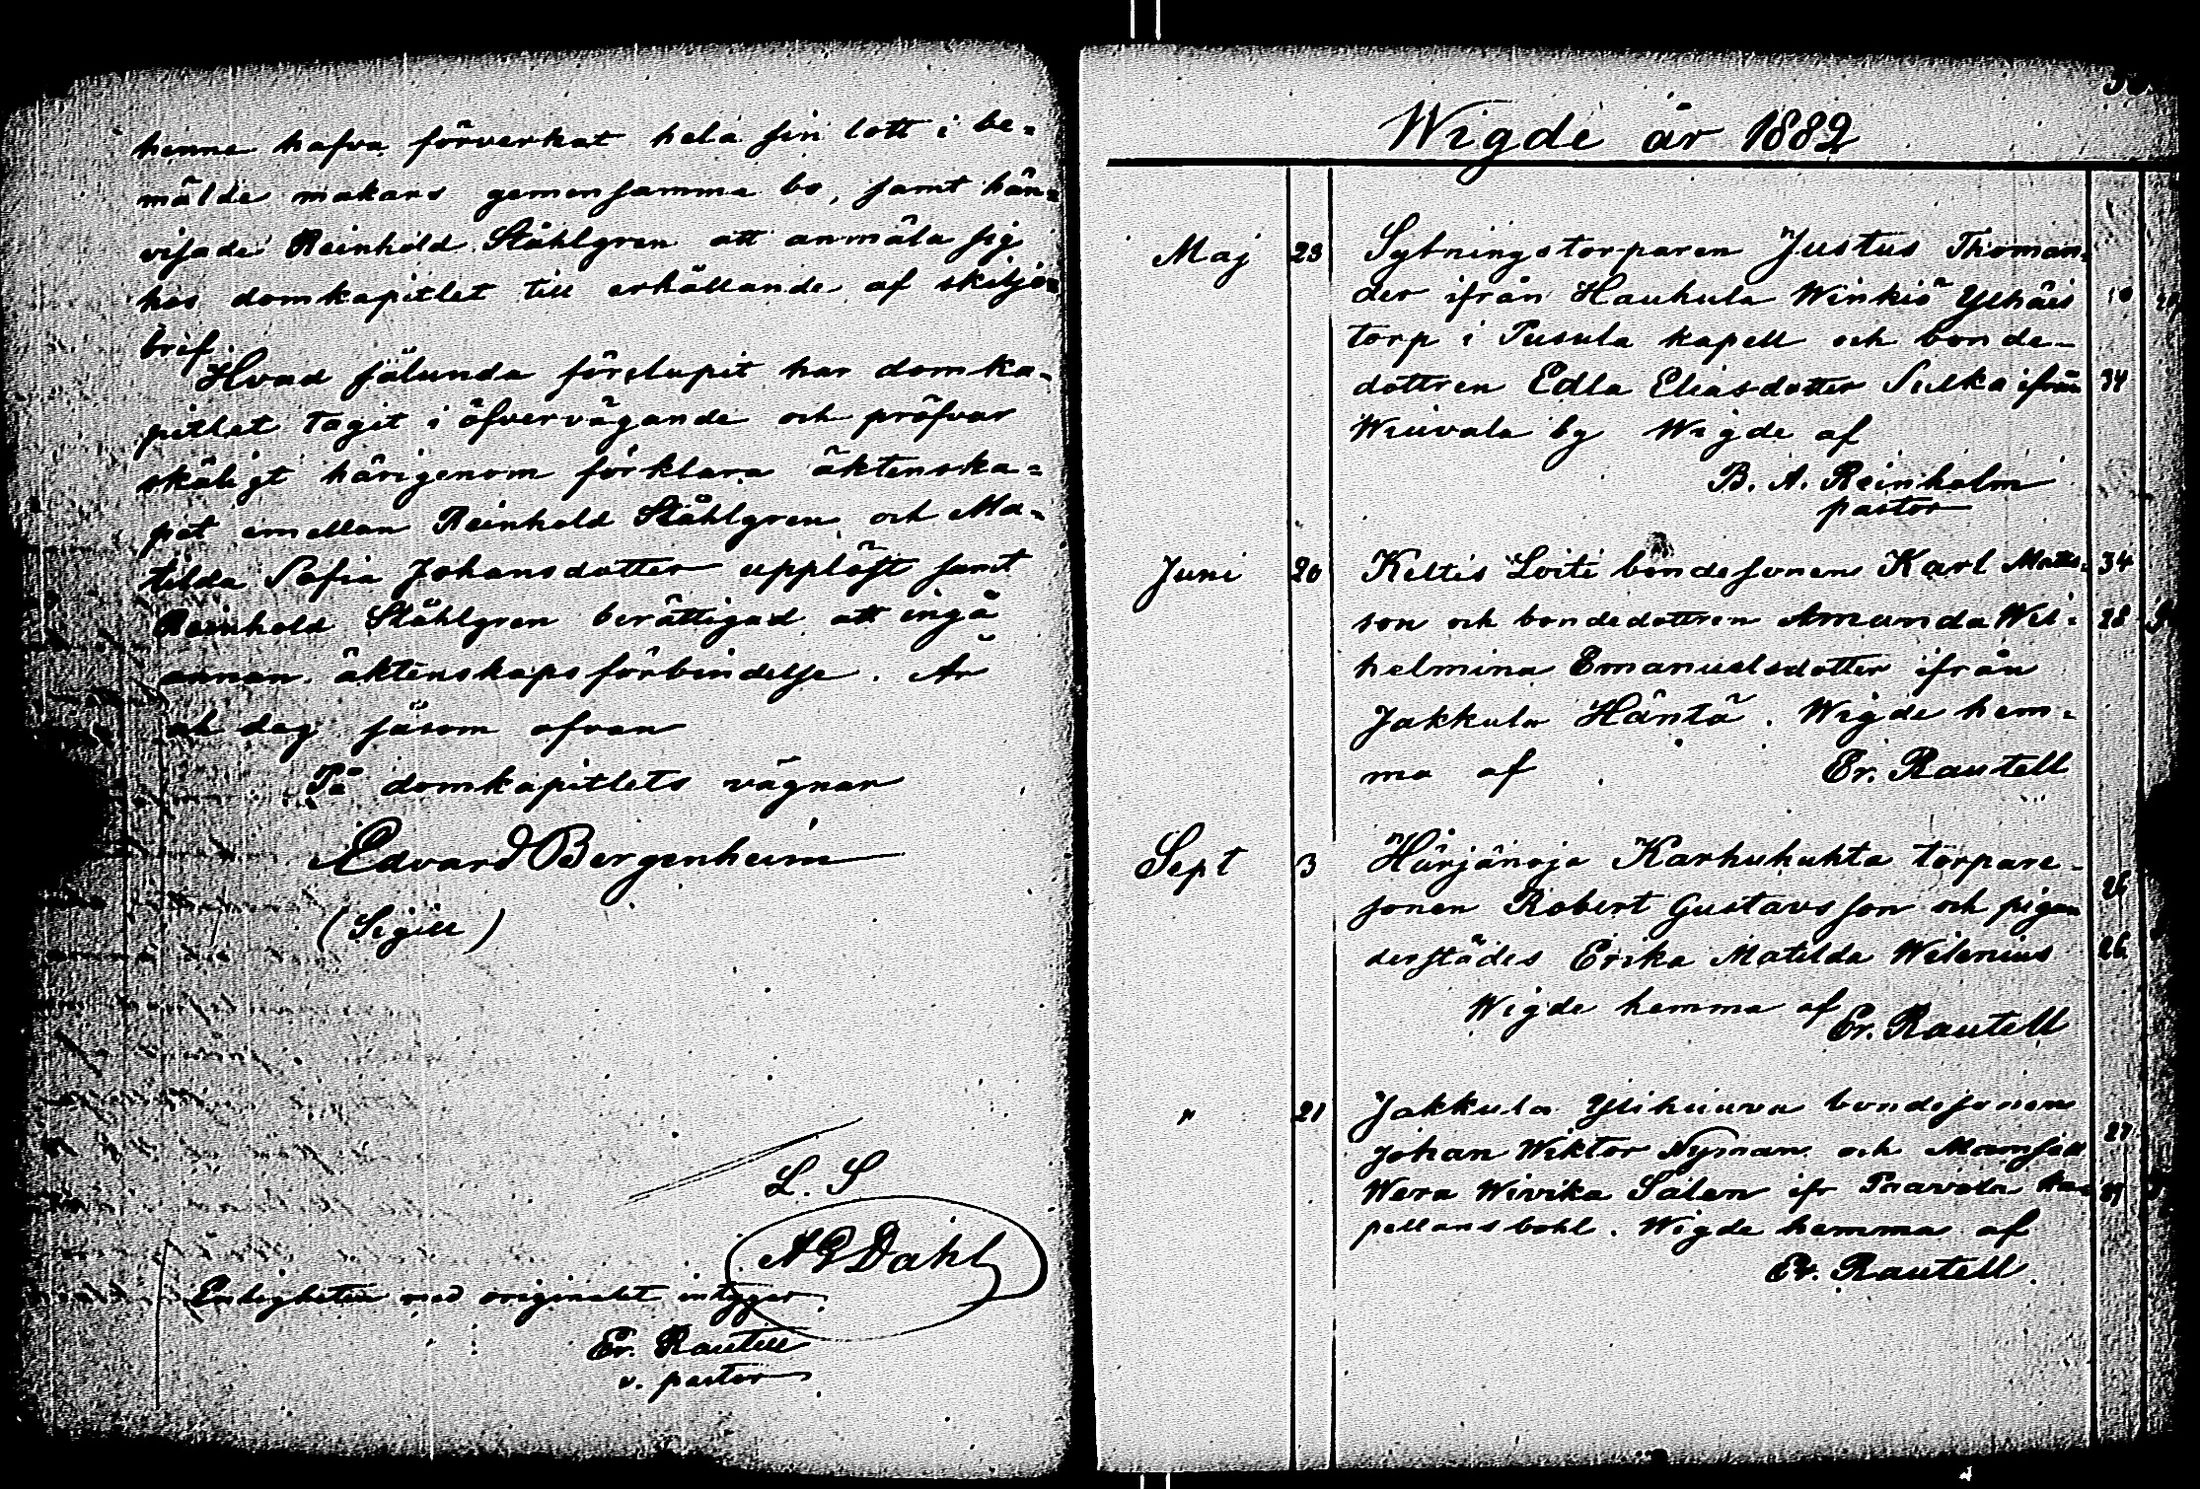 henne hafva förverkat hela sin lott i be-
mälde makars gemensamma bo, samt hän-
visade Reinhold Ståhlgren att anmäla sig
hos domkapitlet till erhållande af skiljo-
bref.
Hvad sålunda förelupit har domka-
pitlet tagit i öfvervägande och pröfvar
skäligt härigenom förklara äktenska-
pet emellan Reinhold Ståhlgren och Ma-
tilda Sofia Johansdotter upplöst samt
Reinhold Ståhlgren berättigad att ingå
annan äktenskapsförbindelse. År
och dag såsom ofvan
På domkapitlets vägnar
Edvard Bergenheim
(Sigill)
L. S
A G Dahl
Enligheten med originalet intygar
Er. Rautell
v. pastor
Wigde år 1882
Maj 23 Sytningstorparen Justus Thoman-
der ifrån Hauhula Winkiö Ylhäis
torp i Pusula kapell och bonde-
dottren Edla Eliasdotter Sulka ifrån 34
Wiuvala by Wigde af
B. A. Reinholm
pastor
Juni 20 Keltis Loiti bondesonen Karl Matts- 34
son och bondedottren Amanda Wil- 28
helmina Emanuelsdotter ifrån
Jakkula Häntä. Wigde hem-
ma af Er. Rautell
Sept 3 Härjänoja Karhuhuhta torpare-
sonen Robert Gustavsson och pigan 26
derstädes Erika Matilda Wilenius 26
Wigde hemma af
Er. Rautell
" 21 Jakkula Ylikuuva bondesonen
Johan Wiktor Nyman och Mamsell 27
Wera Wivika Salen ifr Paavola Ka-
pellansbohl. Wigde hemma af
Er. Rautell.